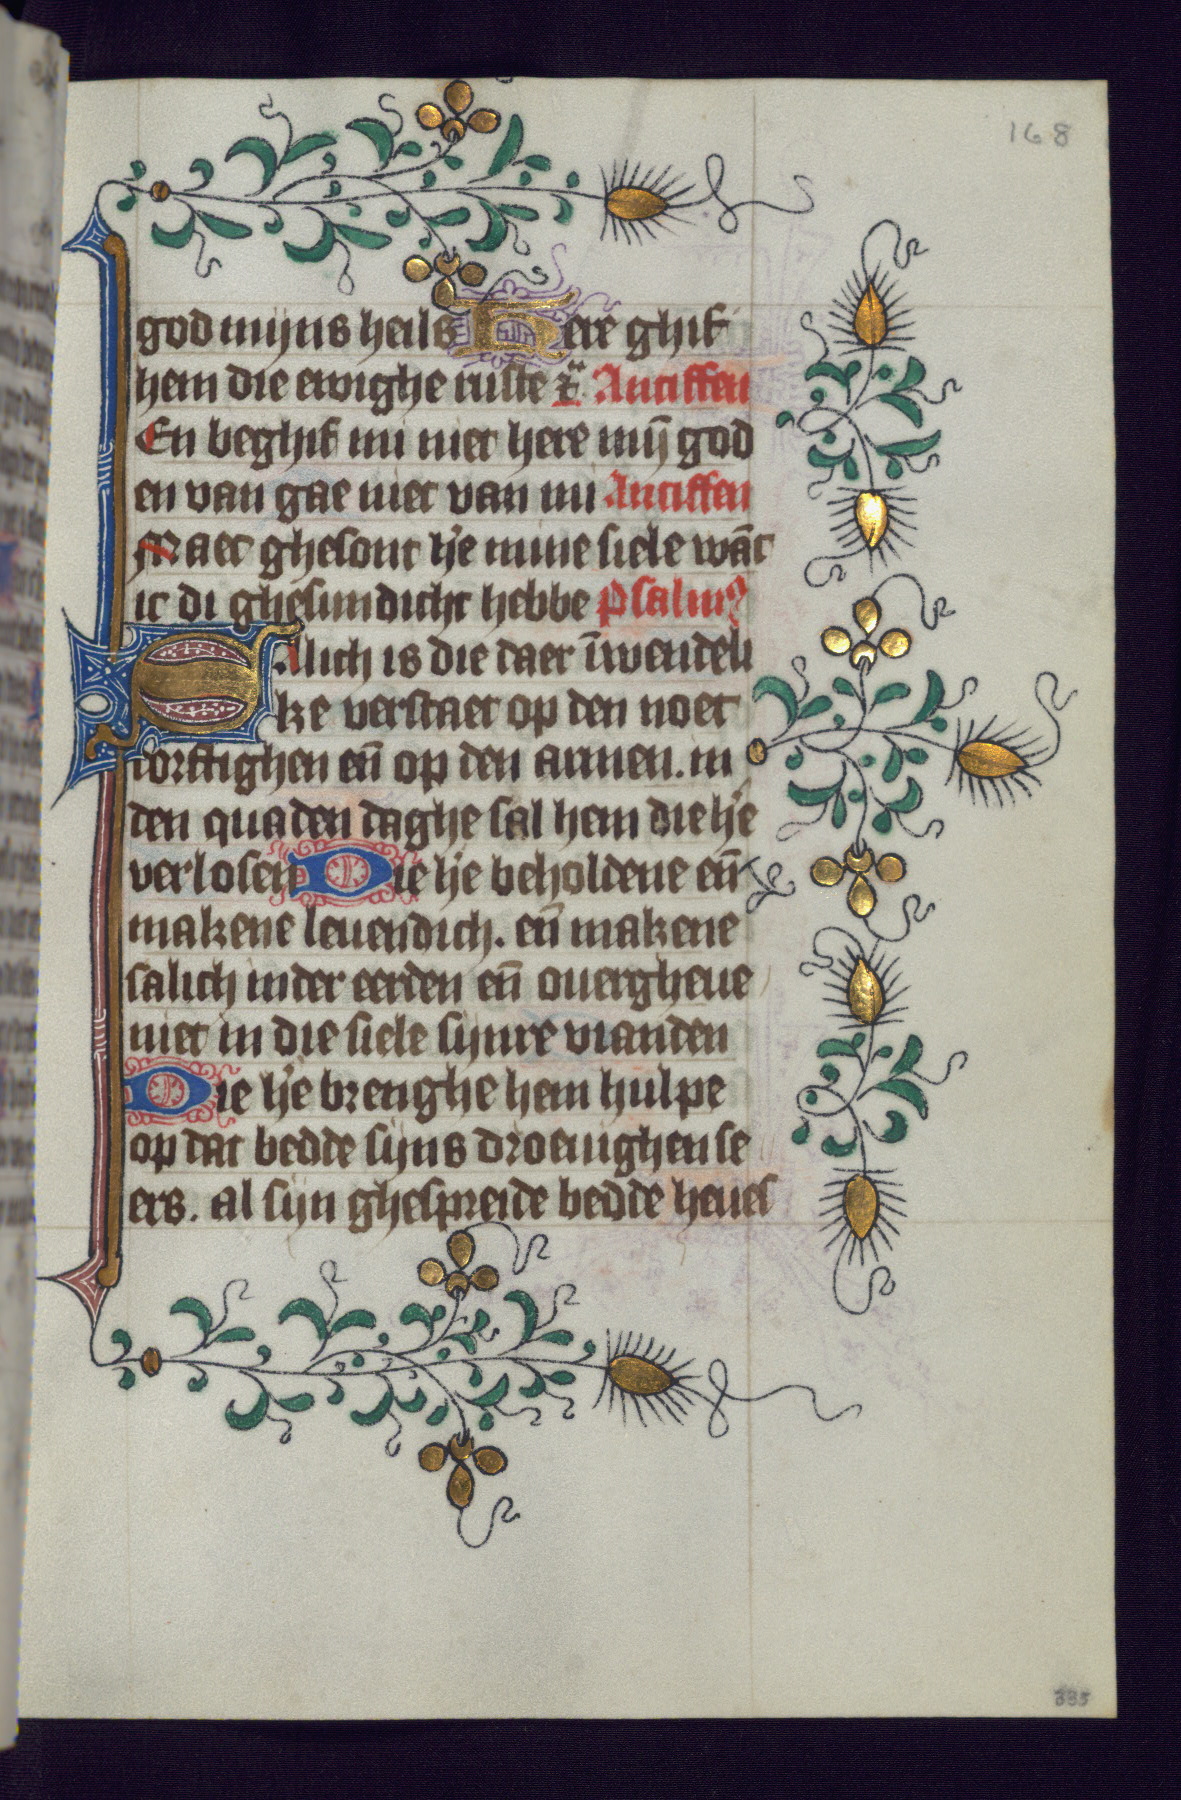 168
god mijns heils Here ghif
hem die ewighe ruste &c̃ Antiffen
En beghif mi niet here mij̄ god
en van gae niet van mi Antiffen
Maer ghesont h̓e mine siele wāt
ic di ghesundicht hebbe Psalmꝰ
Salich is die daer īwendeli
ke verstaet op den noet
torftighen en̄ op den armen. in
den quaden daghe sal hem die h̓e
verlosen Die h̓e beholdene en̄
makene leuendich. en̄ makene
salich inder eerden en̄ ouergheue
niet in die siele sijnre vianden
Die h̓e brenghe hem hulpe
op dat bedde sijns droeuighen se
ers. al sijn ghespreide bedde heues
335